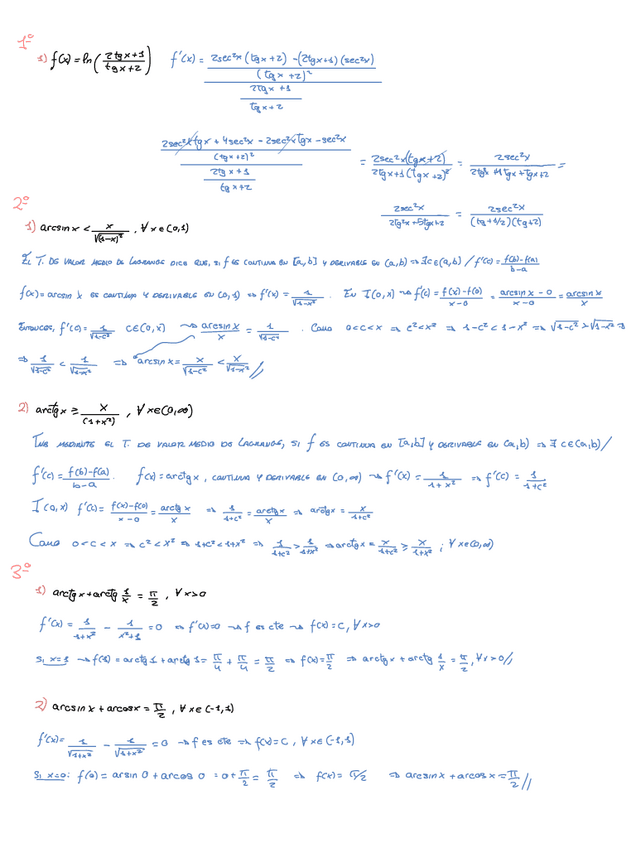 1º
1) f(x) = ln( (2tgx+1)/(tgx+2) )   f'(x) = ( (2sec²x (tgx+2) - (2tgx+1)(sec²x)) / (tgx+2)² ) / ( (2tgx+1)/(tgx+2) )
( (2sec²x tgx + 4sec²x - 2sec²x tgx - sec²x) / (tgx+2)² ) / ( (2tgx+1)/(tgx+2) ) = 2sec²x(tgx+2) / 2tgx+1(tgx+2)² = 2sec²x / 2tg²x+4tgx+tgx+2 =
2sec²x / 2tg²x+5tgx+2 = 2sec²x / (tg+1/2)(tg+2)
2º
1) arcsinx < x/√(1-x)² , ∀x∈(0,1)
EL T. DE VALOR MEDIO DE LAGRANGE DICE QUE, SI f ES CONTINUA EN [a,b] Y DERIVABLE EN (a,b) ⇒ ∃c∈(a,b) / f'(c) = (f(b)-f(a))/(b-a)
f(x) = arcsin x ES CONTINUA Y DERIVABLE EN (0,1) ⇒ f'(x) = 1/√(1-x²) . EN I(0,x) → f'(c) = (f(x)-f(0))/(x-0) = (arcsin x - 0)/(x-0) = arcsin x/x
ENTONCES, f'(c) = 1/√(1-c²) c∈(0,x) → arcsin x/x = 1/√(1-c²) . COMO 0<c<x ⇒ c²<x² ⇒ 1-c² < 1-x² ⇒ √(1-c²) > √(1-x²) ⇒
⇒ 1/√(1-c²) < 1/√(1-x²) ⇒ arcsin x = x/√(1-c²) < x/√(1-x²) //
2) arctgx ≥ x/(1+x²) , ∀x∈(0,∞)
MEDIANTE EL T. DE VALOR MEDIO DE LAGRANGE, SI f ES CONTINUA EN [a,b] Y DERIVABLE EN (a,b) ⇒ ∃ c∈(a,b) /
f'(c) = (f(b)-f(a))/(b-a) . f(x) = arctgx , CONTINUA Y DERIVABLE EN (0,∞) → f'(x) = 1/(1+x²) ⇒ f'(c) = 1/(1+c²)
I(0,x) f'(c) = (f(x)-f(0))/(x-0) = arctgx/x ⇒ 1/(1+c²) = arctgx/x ⇒ arctgx = x/(1+c²)
COMO 0<c<x ⇒ c²<x² ⇒ 1+c²<1+x² ⇒ 1/(1+c²) > 1/(1+x²) ⇒ arctgx = x/(1+c²) ≥ x/(1+x²) ; ∀x∈(0,∞)
3º
1) arctgx + arctg 1/x = π/2 , ∀x>0
f'(x) = 1/(1+x²) - 1/(x²+1) = 0 ⇒ f'(x)=0 → f es cte → f(x) = C, ∀x>0
Si x=1 → f(1) = arctg1 + arctg1 = π/4 + π/4 = π/2 ⇒ f(x) = π/2 ⇒ arctgx + arctg 1/x = π/2, ∀x>0//
2) arcsinx + arccosx = π/2 , ∀x∈(-1,1)
f'(x) = 1/√(1+x²) - 1/√(1+x²) = 0 → f es cte ⇒ f(x) = C , ∀x∈(-1,1)
Si x=0: f(0) = arsin 0 + arcos 0 = 0 + π/2 = π/2 ⇒ f(x) = π/2 ⇒ arcsinx + arcosx = π/2 //